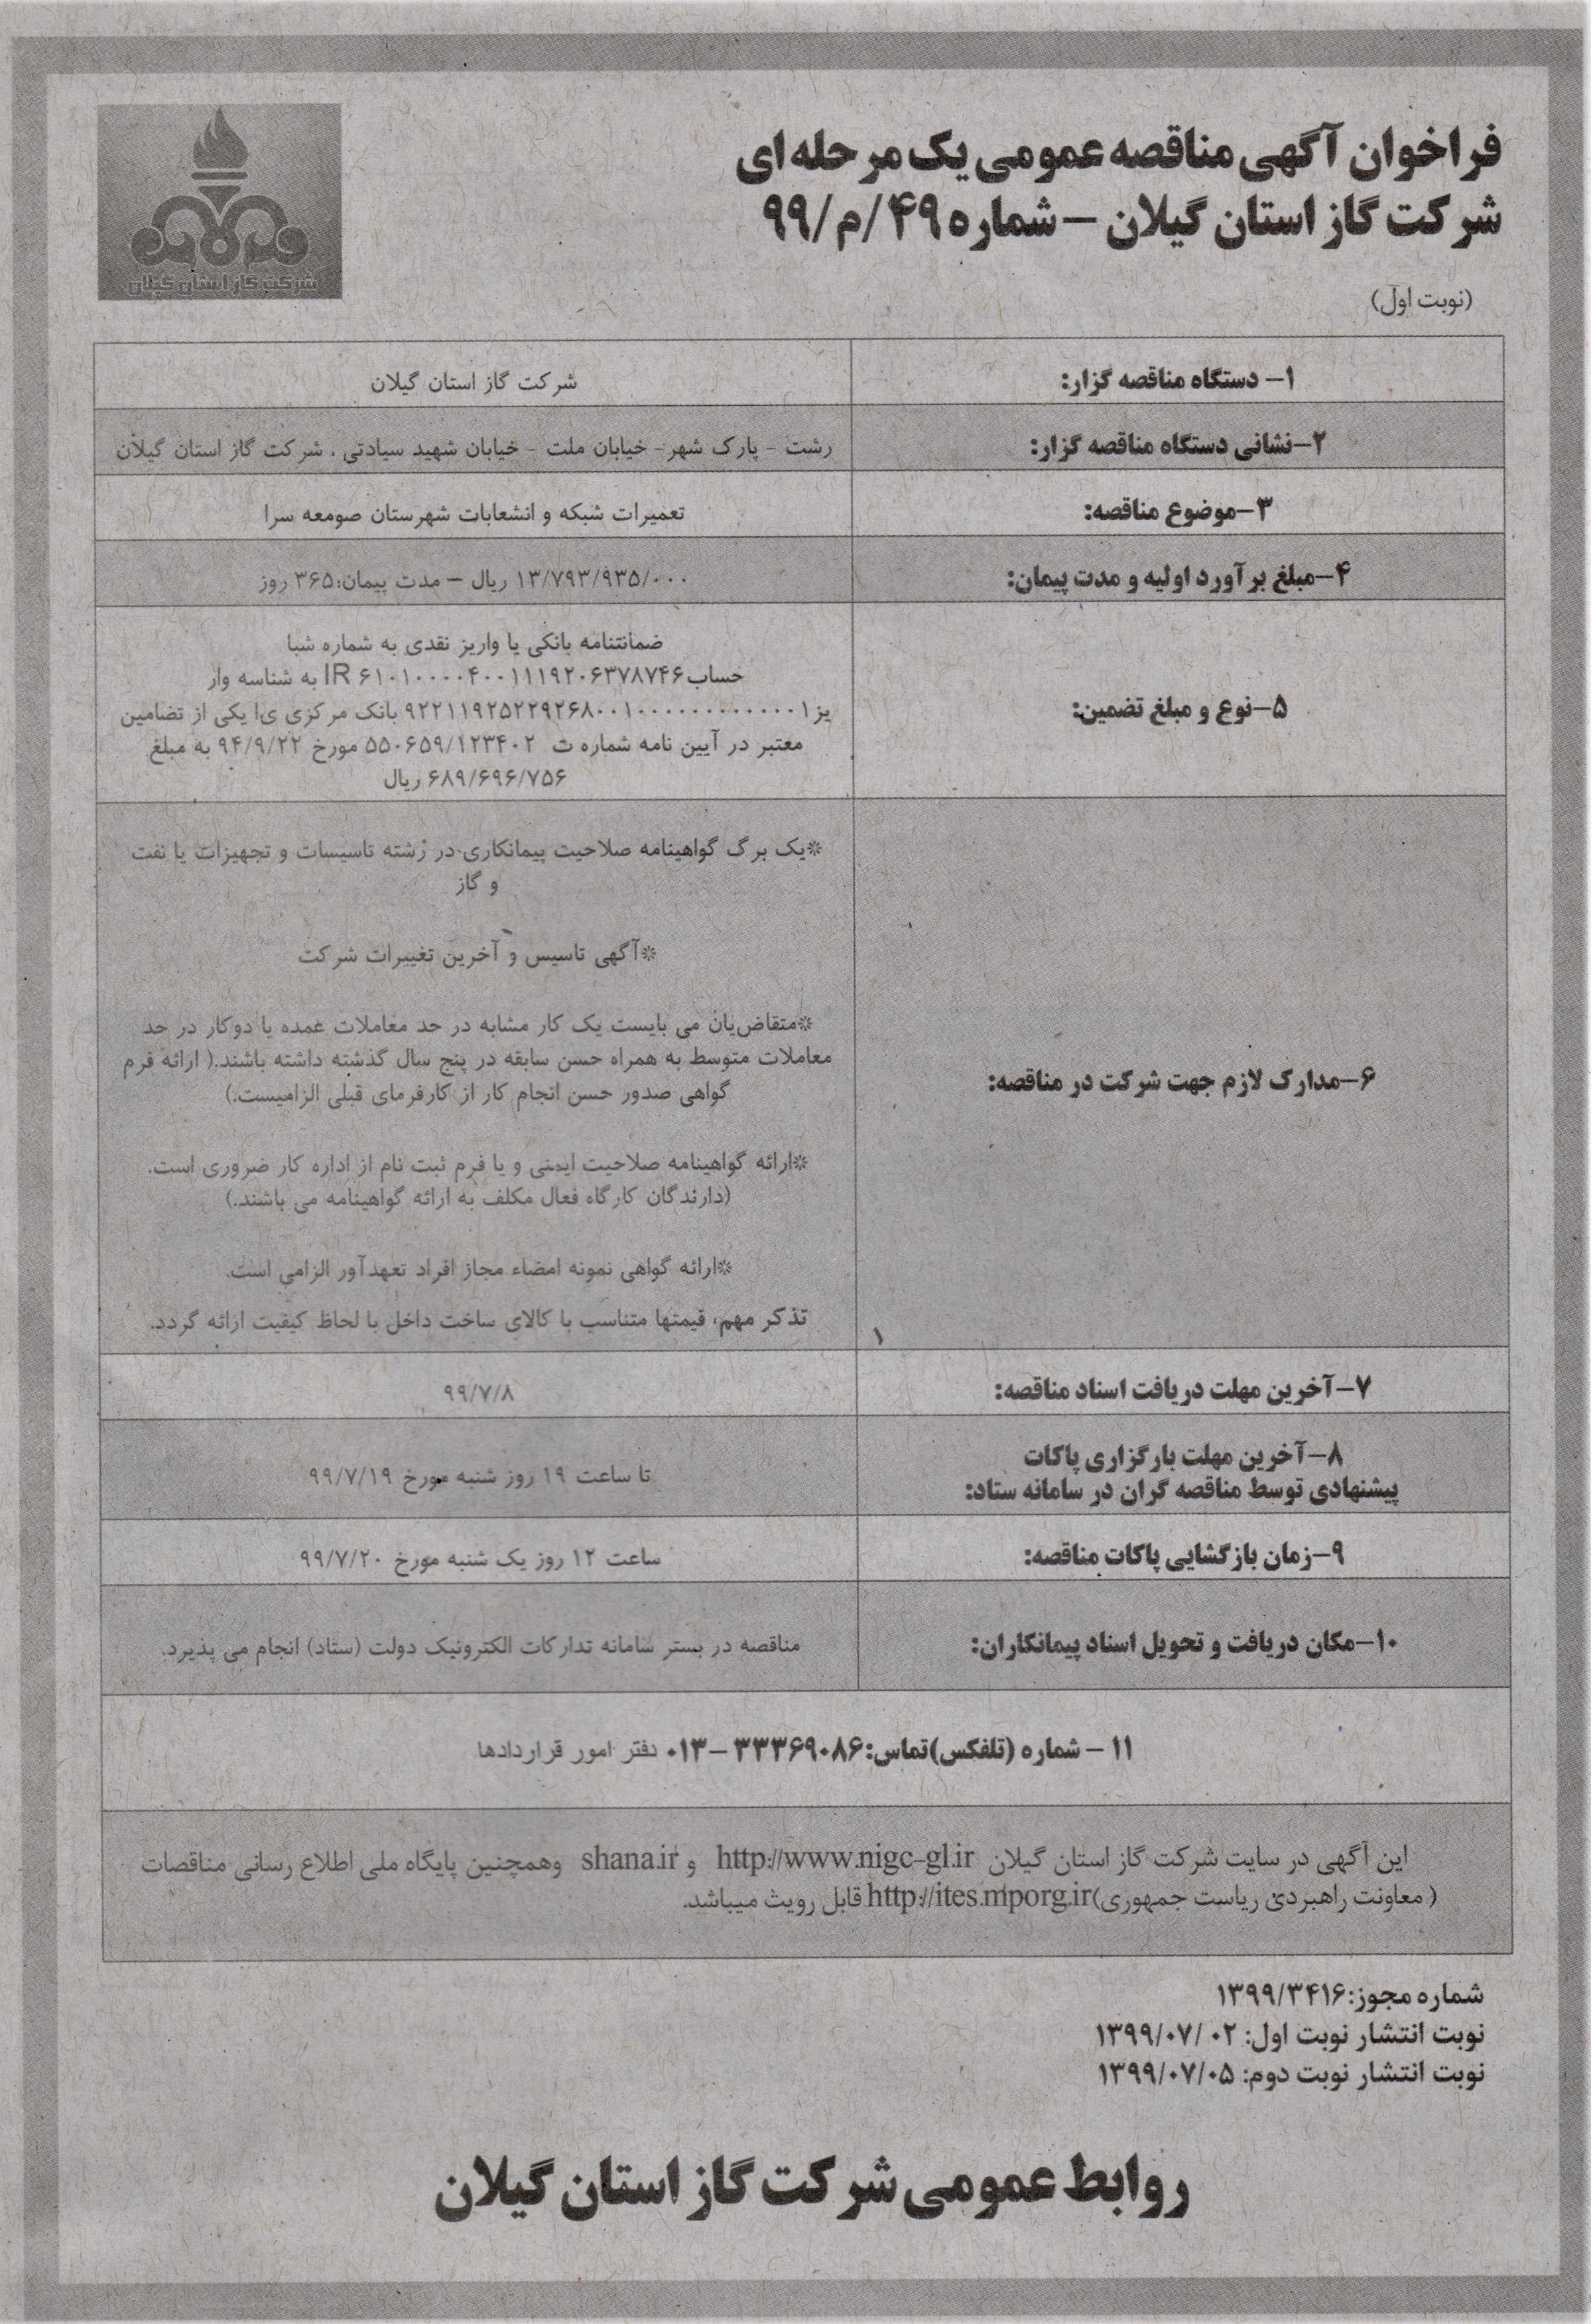 فراخوان آگهی مناقصه عمومی یک مرحله ای
شرکت گاز استان گیلان – شماره ۴۹/م/۹۹
شرکت گاز استان گیلان
(نوبت اول)
۱- دستگاه مناقصه گزار:
شرکت گاز استان گیلان
۲-نشانی دستگاه مناقصه گزار:
رشت - پارک شهر- خیابان ملت - خیابان شهید سیادتی ، شرکت گاز استان گیلان
۳-موضوع مناقصه:
تعمیرات شبکه و انشعابات شهرستان صومعه سرا
۴-مبلغ برآورد اولیه و مدت پیمان:
۱۳/۷۹۳/۹۳۵/۰۰۰ ریال – مدت پیمان:۳۶۵ روز
۵-نوع و مبلغ تضمین:
ضمانتنامه بانکی یا واریز نقدی به شماره شبا
حساب IR ۶۱۰۱۰۰۰۰۴۰۰۱۱۱۹۲۰۶۳۷۸۷۴۶ به شناسه وار
یز ۹۲۲۱۱۹۲۵۲۲۹۲۶۸۰۰۱۰۰۰۰۰۰۰۰۰۰۰۰۱ بانک مرکزی یا یکی از تضامین
معتبر در آیین نامه شماره ت ۵۵۰۶۵۹/۱۲۳۴۰۲ مورخ ۹۴/۹/۲۲ به مبلغ
۶۸۹/۶۹۶/۷۵۶ ریال
۶-مدارک لازم جهت شرکت در مناقصه:
*یک برگ گواهینامه صلاحیت پیمانکاری در رشته تاسیسات و تجهیزات یا نفت
و گاز
*آگهی تاسیس و آخرین تغییرات شرکت
*متقاضیان می بایست یک کار مشابه در حد معاملات عمده یا دوکار در حد
معاملات متوسط به همراه حسن سابقه در پنج سال گذشته داشته باشند.( ارائه فرم
گواهی صدور حسن انجام کار از کارفرمای قبلی الزامیست.)
*ارائه گواهینامه صلاحیت ایمنی و یا فرم ثبت نام از اداره کار ضروری است.
(دارندگان کارگاه فعال مکلف به ارائه گواهینامه می باشند.)
*ارائه گواهی نمونه امضاء مجاز افراد تعهدآور الزامی است.
تذکر مهم: قیمتها متناسب با کالای ساخت داخل با لحاظ کیفیت ارائه گردد.
۷-آخرین مهلت دریافت اسناد مناقصه:
۹۹/۷/۸
۸-آخرین مهلت بارگزاری پاکات
پیشنهادی توسط مناقصه گران در سامانه ستاد:
تا ساعت ۱۹ روز شنبه مورخ ۹۹/۷/۱۹
۹-زمان بازگشایی پاکات مناقصه:
ساعت ۱۲ روز یک شنبه مورخ ۹۹/۷/۲۰
۱۰-مکان دریافت و تحویل اسناد پیمانکاران:
مناقصه در بستر سامانه تدارکات الکترونیک دولت (ستاد) انجام می پذیرد.
۱۱ - شماره (تلفکس)تماس:۳۳۳۶۹۰۸۶ -۰۱۳ دفتر امور قراردادها
این آگهی در سایت شرکت گاز استان گیلان http://www.nigc-gl.ir و shana.ir وهمچنین پایگاه ملی اطلاع رسانی مناقصات
( معاونت راهبردی ریاست جمهوری)http://ites.mporg.ir قابل رویت میباشد.
شماره مجوز:۱۳۹۹/۳۴۱۶
نوبت انتشار نوبت اول: ۰۲ /۱۳۹۹/۰۷
نوبت انتشار نوبت دوم: ۱۳۹۹/۰۷/۰۵
روابط عمومی شرکت گاز استان گیلان